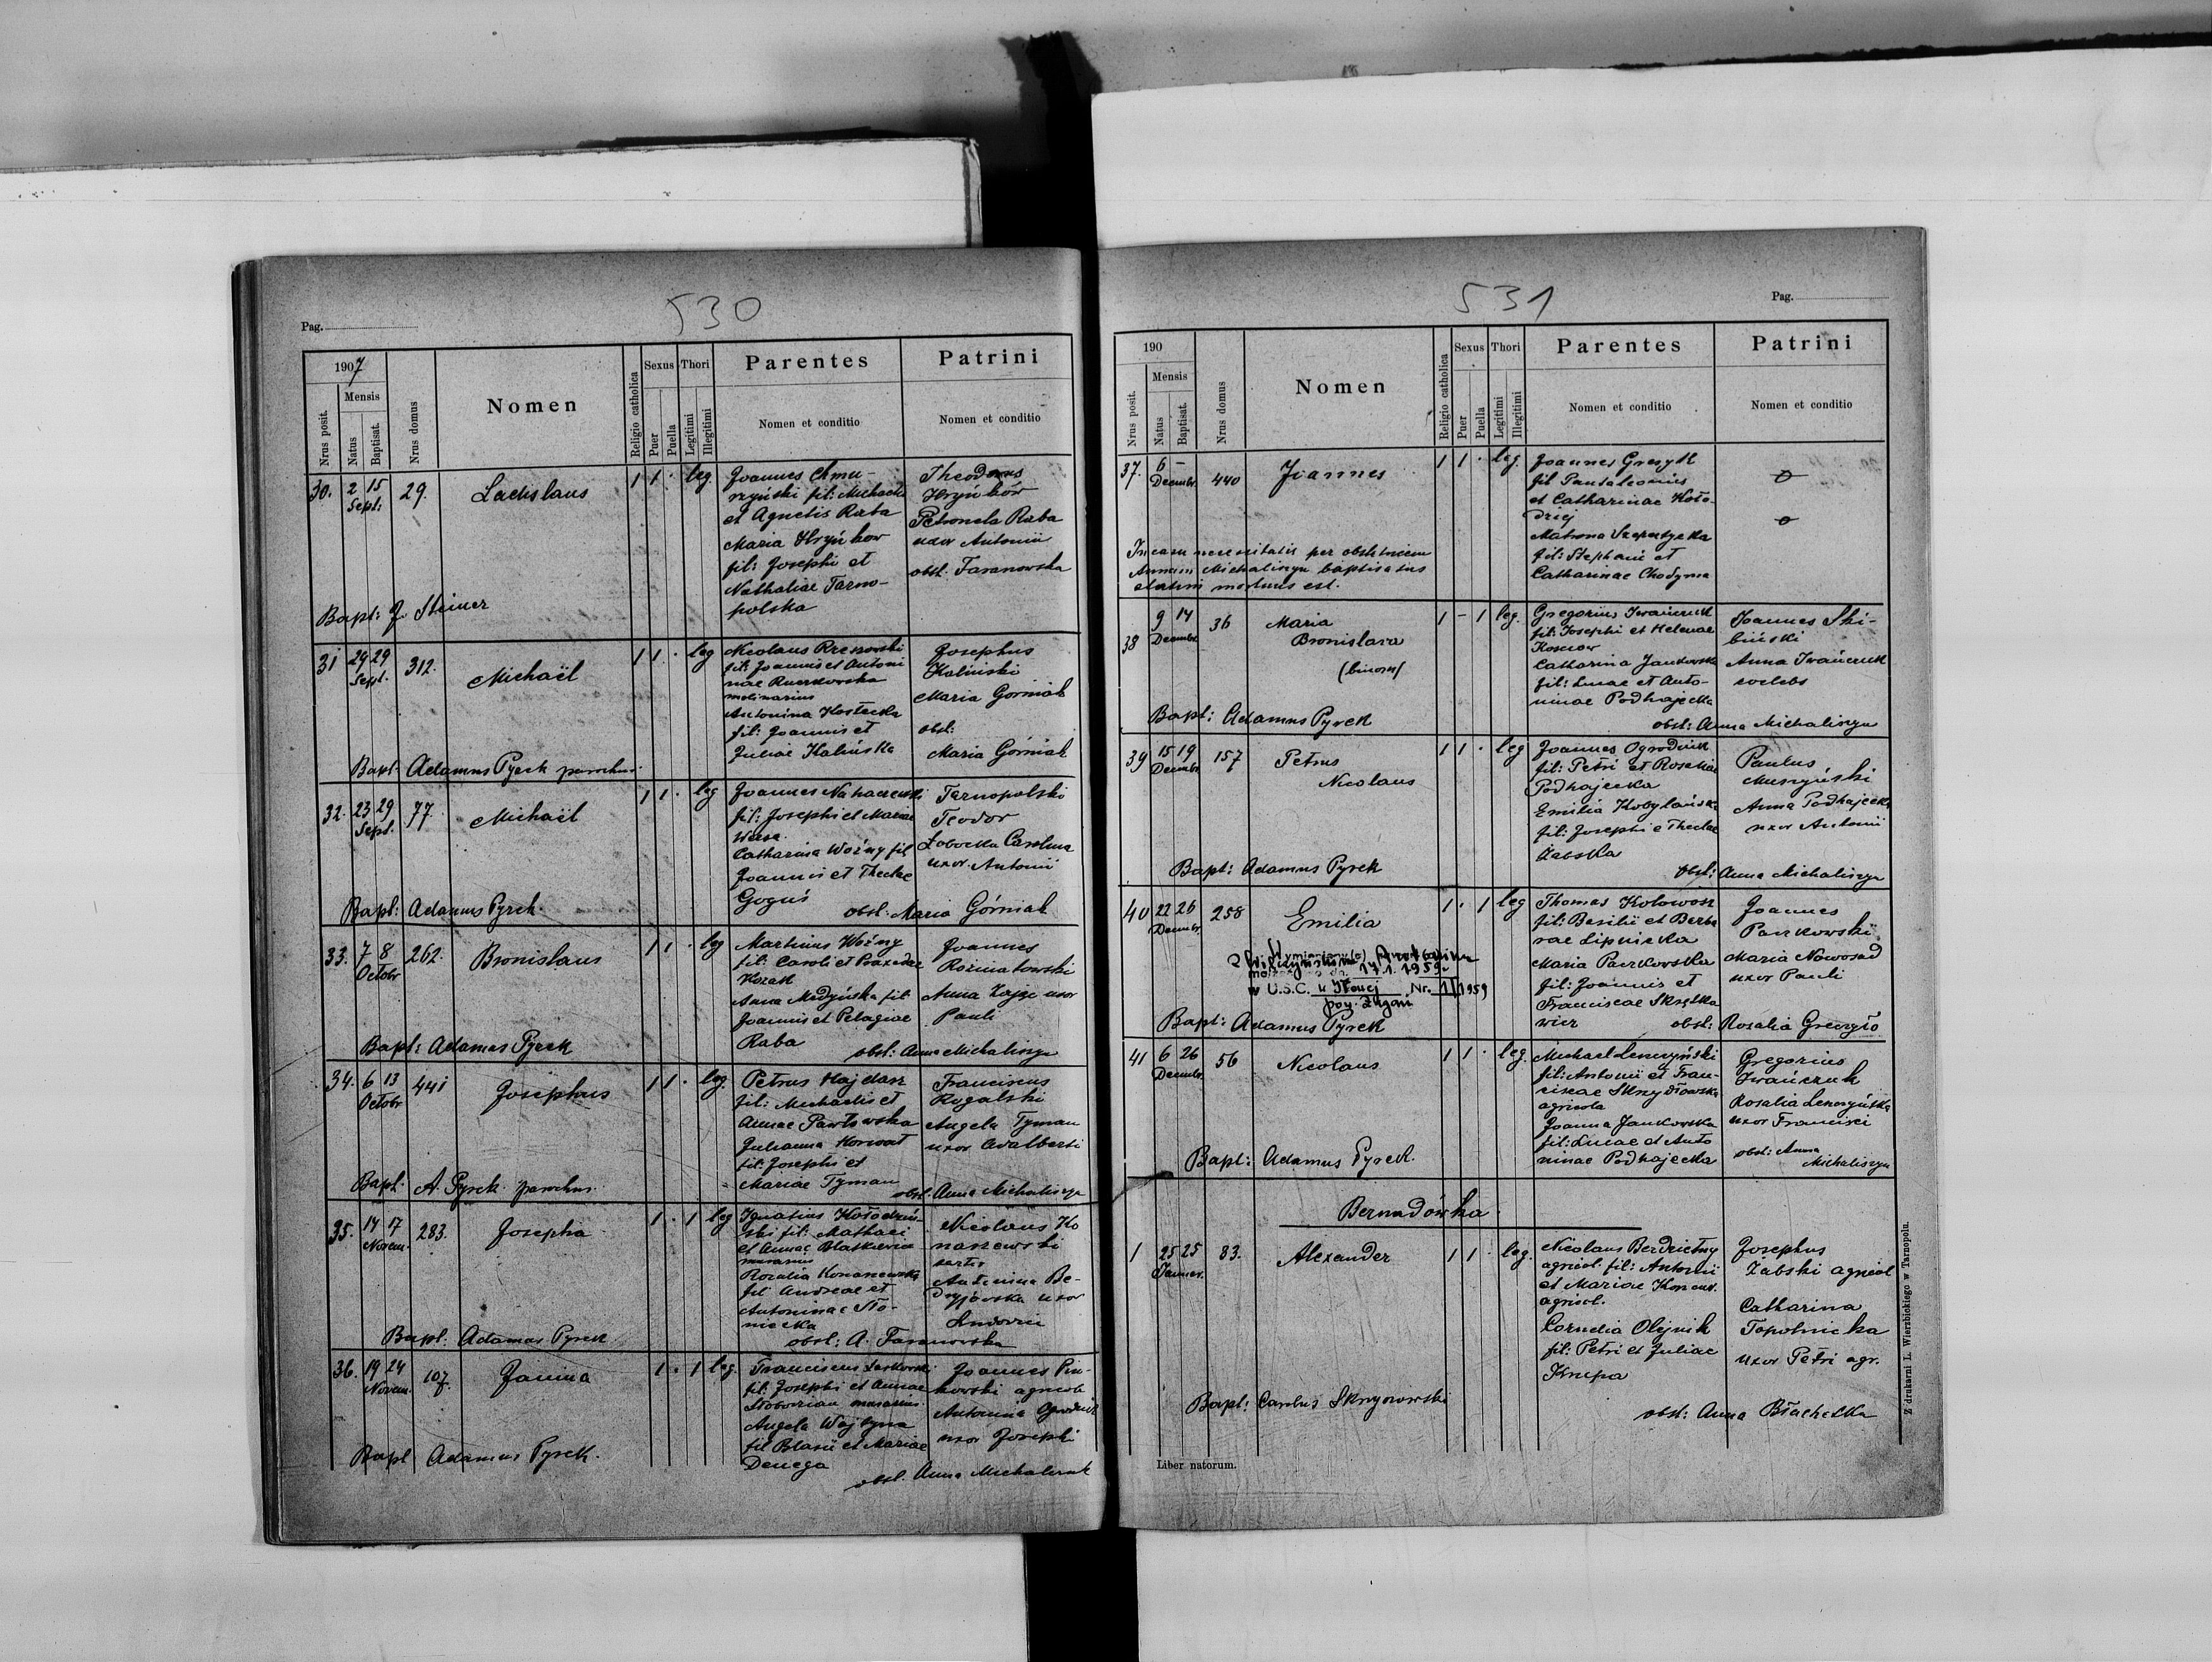 530
Pag.
1907
Nrus posit.
Mensis
Natus
Baptisat.
Nrus domus
Nomen
Religio catholica
Sexus
Puer
Puella
Thori
Legitimi
Illegitimi
Parentes
Nomen et conditio
Patrini
Nomen et conditio
30. 2 15 Sept: 29. Ladislaus 1 1 · leg.
Joannes Chmu-
rzyński fil: Michaelis
et Agnetis Raba
Maria Hryńkow
fil: Josephi et
Nathaliae Tarno-
polska
Theodorus
Hryńków
Petronela Raba
uxor Antonii
obst. Taranowska
Bapt: J. Steiner
31 24 29 Sept. 312. Michaël 1 1 · leg
Nicolaus
fil: Joannis et Antoni
nae
molinarius
Antonina Kostecka
fil: Joannis et
Juliae Kalińska
Josephus
Kaliński
Maria Gorniak
obst:
Maria Górniak
Bapt. Adamus Pyrek parochus.
32. 23 29 Sept. 77. Michaël 1 1 · leg
Joannes
fil: Josephi et Mariae
Catharina Woźny fil
Joannis et Theclae
Goguś
Tarnopolski
Teodor
Carolina
uxor. Antonii
Bapt: Adamus Pyrek.
obst: Maria Górniak
33. 7 8 Octobr 262. Bronislaus 1 1 · leg
Martinus Woźny
fil: Caroli et Praxedae
Kozak
Anna Medyńska fil.
Joannis et Pelagiae
Raba
Joannes
Rożniatowski
Anna Zając uxor
Pauli
Bapt: Adamus Pyrek
obst: Anna Michaliszyn
34. 6 13 Octobr 441 Josephus 1 1 · leg.
Petrus Hajdasz
fil: Michaelis et
Annae Pawłowska
Julianna Horwat
fil: Josephi et
Mariae Tyman
Franciscus
Rogalski
Angela Tyman
uxor Adalberti
Bapt. A. Pyrek parochus.
obst. Anna Michaliszyn
35. 14 17 Novem. 283. Josepha 1 · 1 leg
Ignatius Kołodziń-
ski fil: Mathaei
et Annae
murarius
Rozalia Konaszewska
fil Andreae et
Antoninae Sło-
niecka
Nicolaus Ko
naszewski
sartor
Antonina Be-
uxor
Ludovici
Bapt. Adamus Pyrek
obst: A. Taranowska
36. 19 24 Novem. 107. Janina 1 · 1 leg.
Franciscus
fil: Josephi et Annae
murarius
Angela Wojtyna
fil Blasii et Mariae
Denega
Joannes Pin-
kowski agricola
Antonina
uxor Josephi
Bapt Adamus Pyrek.
obst. Anna
531
Pag.
190
Nrus posit.
Mensis
Natus
Baptisat.
Nrus domus
Nomen
Religio catholica
Sexus
Puer
Puella
Thori
Legitimi
Illegitimi
Parentes
Nomen et conditio
Patrini
Nomen et conditio
37. 6 – Decembr. 440 Joannes 1 1 · leg.
Joannes
fil Pantaleonis
et Catharinae Koło-
dziej
Matrona
fil: Stephani et
Catharinae Chodyma
In casu necessitatis per obstetricem
Annam Michaliszyn baptisatus
statim mortuus est.
38 9 14 Decembr. 36 Maria
Bronislava
(binom)
1 – 1 leg.
Gregorius Iwańczuk
fil: Josephi et Helenae
Catharina Jankowska
fil: Lucae et Anto-
ninae Podhajecka
Joannes Ski-
biński
Anna Iwańczuk
coelebs
Bapt: Adamus Pyrek
obst: Anna Michaliszyn
39 15 19 Decembr 157 Petrus
Nicolaus
1 1 · leg
Joannes Ogrodnik
fil: Petri et Rosaliae
Podhajecka
Emilia Kobylańska
fil: Josephi e Theclae
Żabska
Paulus
Muszyński
Anna Podhajecka
uxor Antonii
Bapt: Adamus Pyrek
obst: Anna Michaliszyn
40 22 26 Decembr. 258 Emilia 1 · 1 leg
17.1.1959r
w U.S.C. Nr. 1/1959
pow. Żagań
Thomas
fil: Basilii et Barba
rae Lipnicka
Maria Paczkowska
fil: Joannis et
Franciscae Skrętka
wicz
Joannes
Paczkowski
Maria Nowosad
uxor Pauli
Bapt: Adamus Pyrek
obst: Rosalia
41 6 26 Decembr 56 Nicolaus 1 1 · leg.
Michael Lenczyński
fil: Antonii et Fran-
ciscae Skrzydłowska
agricola
Joanna Jankowska
fil: Lucae et Anto
ninae Podhajecka
Gregorius
Iwańczuk
Rosalia Lenczyńska
uxor Francisci
obst: Anna
Michaliszyn
Bapt: Adamus Pyrek.
Bernadówka
1 25 25 Januar. 83. Alexander 1 1 · leg.
Nicolaus Berdzietny
agricol. fil: Antonii
et Mariae
agricol.
Cornelia Olejnik
fil: Petri et Juliae
Krupa
Josephus
Żabski agricol
Catharina
Topolnicka
uxor Petri agr.
Bapt: Carolus
obst: Anna
Liber natorum.
Z drukarni L. Wierzbickiego w Tarnopolu.